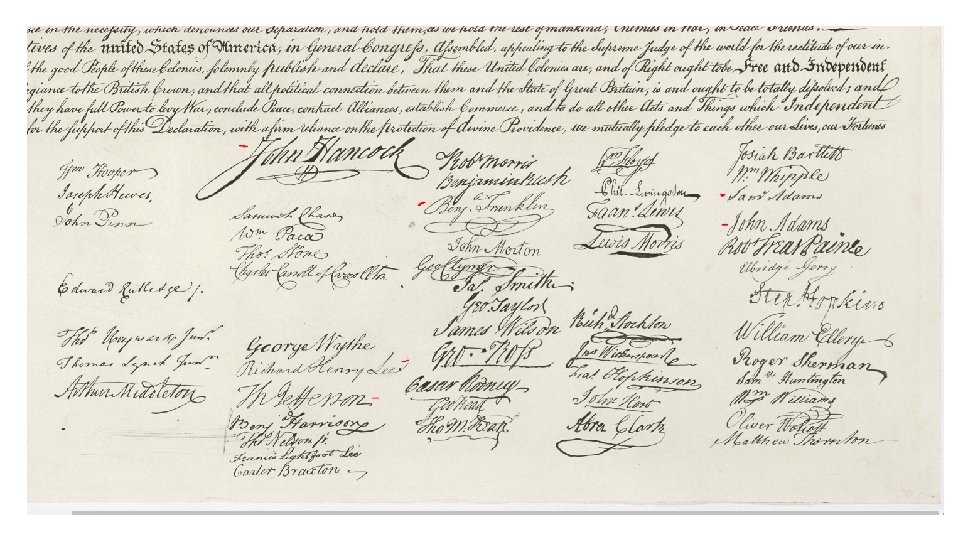 in the necessity, which denounces our Separation, and hold them, as we hold the rest of mankind, Enemies in War, in Peace Friends.
tives of the united States of America, in General Congress, Assembled, appealing to the Supreme Judge of the world for the rectitude of our in-
the good People of these Colonies, solemnly publish and declare, That these United Colonies are, and of Right ought to be Free and Independent
egiance to the British Crown, and that all political connection between them and the State of Great Britain, is and ought to be totally dissolved; and
they have full Power to levy War, conclude Peace, contract Alliances, establish Commerce, and to do all other Acts and Things which Independent
for the support of this Declaration, with a firm reliance on the protection of divine Providence, we mutually pledge to each other our Lives, our Fortunes
Wm Hooper
Joseph Hewes,
John Penn
Edward Rutledge /.
Thos Heyward Junr.
Thomas Lynch Junr.
Arthur Middleton
John Hancock
Samuel Chase
Wm Paca
Thos Stone
Charles Carroll of Carrollton
George Wythe
Richard Henry Lee
Th Jefferson
Benj Harrison
Thos Nelson jr.
Francis Lightfoot Lee
Carter Braxton
Robt Morris
Benjamin Rush
Benj. Franklin
John Morton
Geo Clymer
Jas. Smith
Geo. Taylor
James Wilson
Geo. Ross
Caesar Rodney
Geo Read
Tho M:Kean
Wm Floyd
Phil. Livingston
Frans. Lewis
Lewis Morris
Richd. Stockton
Jno Witherspoon
Fras. Hopkinson
John Hart
Abra Clark
Josiah Bartlett
Wm Whipple
Saml Adams
John Adams
Robt Treat Paine
Elbridge Gerry
Step. Hopkins
William Ellery
Roger Sherman
Saml Huntington
Wm Williams
Oliver Wolcott
Matthew Thornton